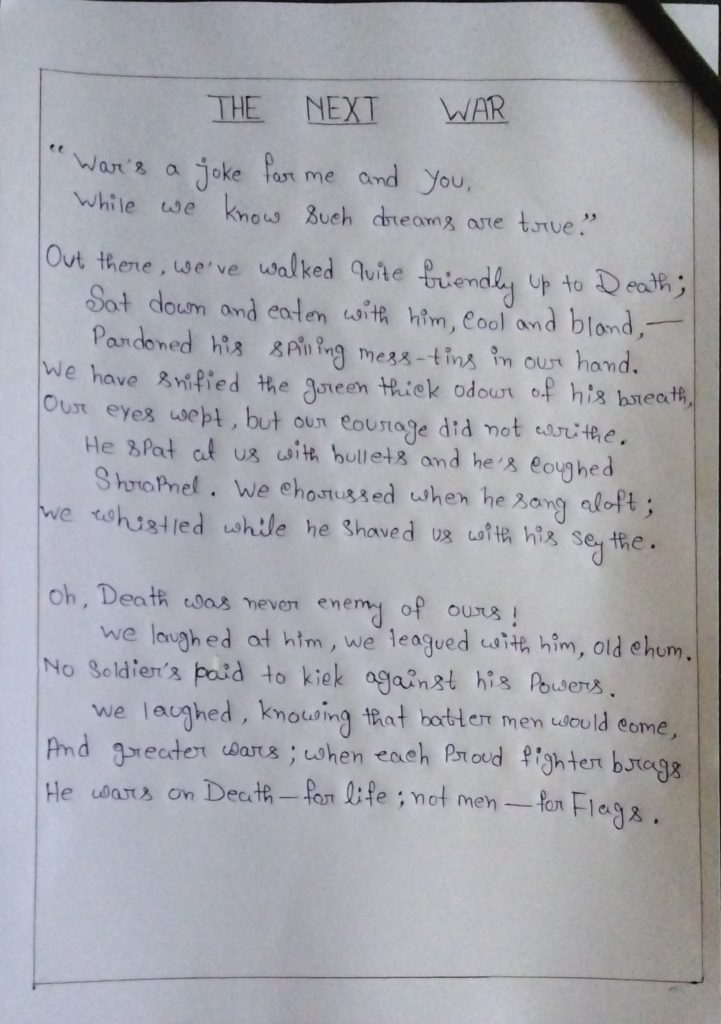 THE NEXT WAR
"War's a joke for me and you,
While we know such dreams are true."
Out there, we've walked quite friendly up to Death;
Sat down and eaten with him, cool and bland,—
Pardoned his spilling mess-tins in our hand.
We have snified the green thick odour of his breath,
Our eyes wept, but our courage did not writhe.
He spat at us with bullets and he's coughed
Shrapnel. We chorussed when he sang aloft;
We whistled while he shaved us with his scythe.
Oh, Death was never enemy of ours!
We laughed at him, we leagued with him, old chum.
No Soldier's paid to kick against his Powers.
We laughed, knowing that batter men would come,
And greater wars; when each Proud fighter brags
He wars on Death—for life; not men—for Flags.